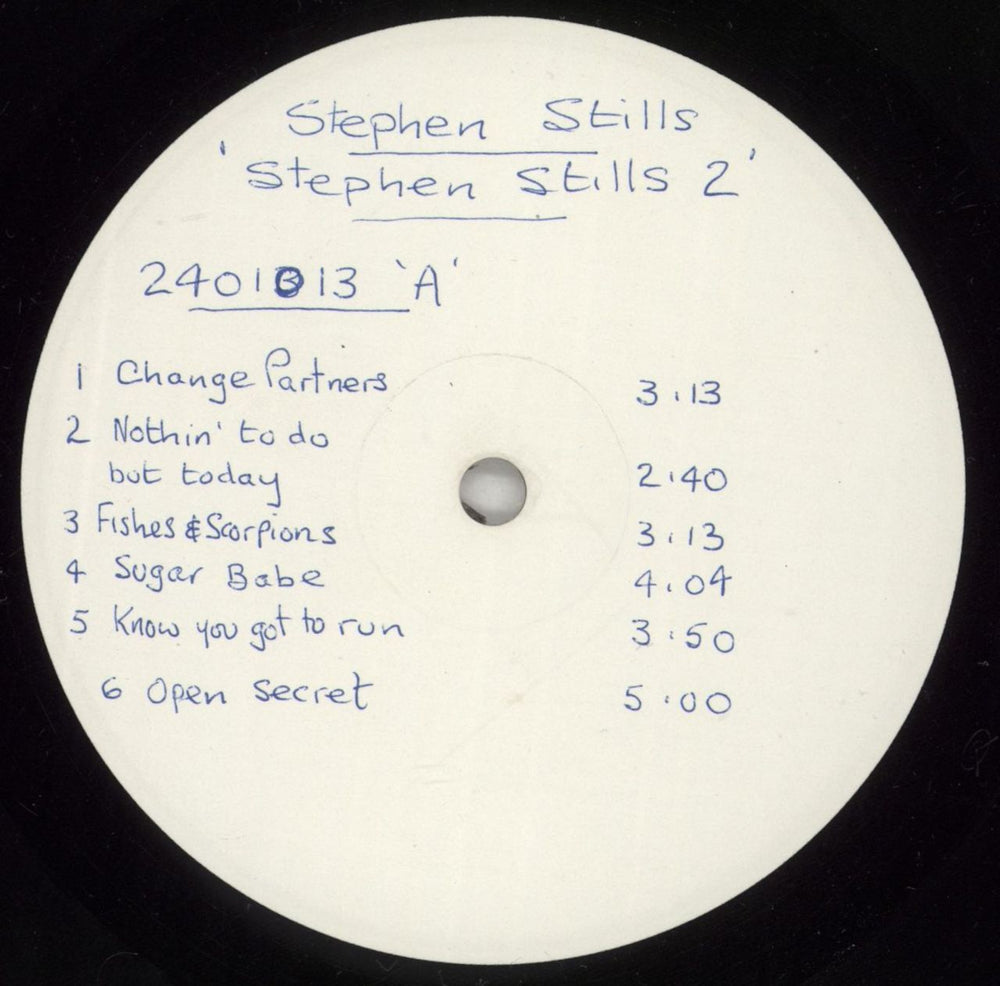 Stephen Stills
'Stephen Stills 2'
2401013 'A'
1 Change Partners 3:13
2 Nothin' to do
but today 2:40
3 Fishes & Scorpions 3:13
4 Sugar Babe 4.04
5 Know you got to run 3:50
6 Open secret 5:00